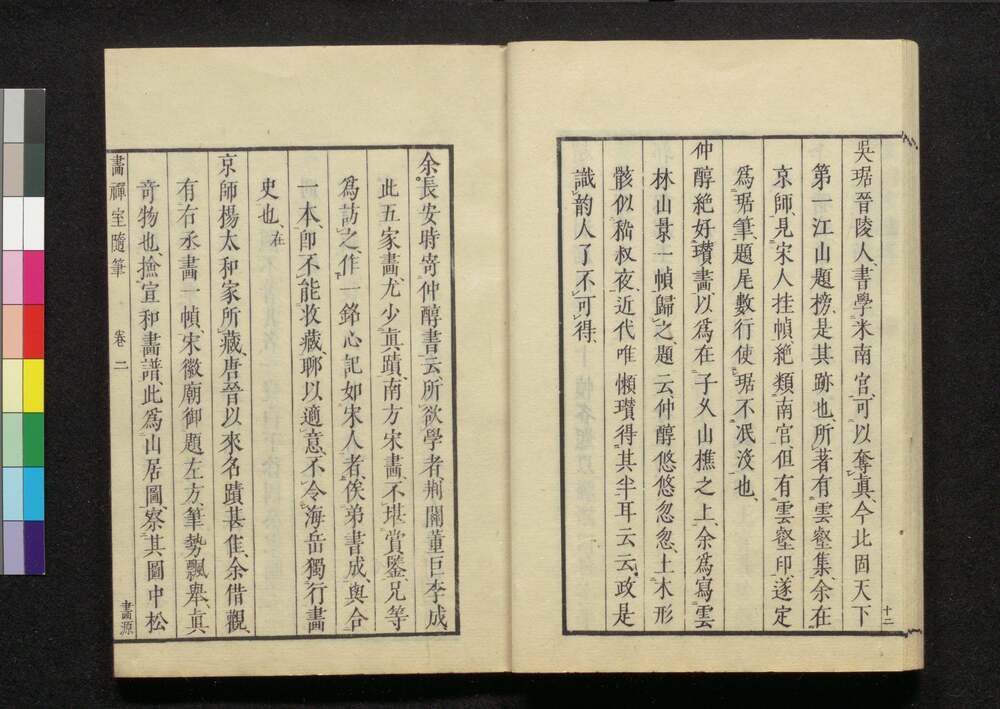 吳琚晉陵人、書學米南官、可以奪眞、今北固天下
第一江山題榜、是其跡也、所著有雲壑集、余在
京師、見宋人挂幀、絶類南官、但有雲壑印、遂定
爲琚筆、題尾數行使琚不泯沒也、
仲醇絶好瓚畵、以爲在子久山樵之上、余爲寫雲
林山景一幀歸之、題云、仲醇悠悠忽忽、土木形
骸、似嵇叔夜、近代唯懶瓚得其半耳云云、政是
識韵人了不可得、
十二
余長安時寄仲醇書云、所欲學者、荆關董巨李成、
此五家畵尤少眞蹟、南方宋畵、不堪賞鑒、兄等
爲訪之、作一銘心記如宋人者、俟弟書成、與合
一本、卽不能收藏、聊以適意、不令海岳獨行畵
史也、在
京師楊太和家所藏、唐晉以來名蹟甚隹、余借觀、
有右丞畵一幀、宋徽廟御題左方、筆勢飄舉、眞
奇物也、撿宣和畵譜、此爲山居圖、察其圖中松
畵禪室隨筆 卷二 畵源